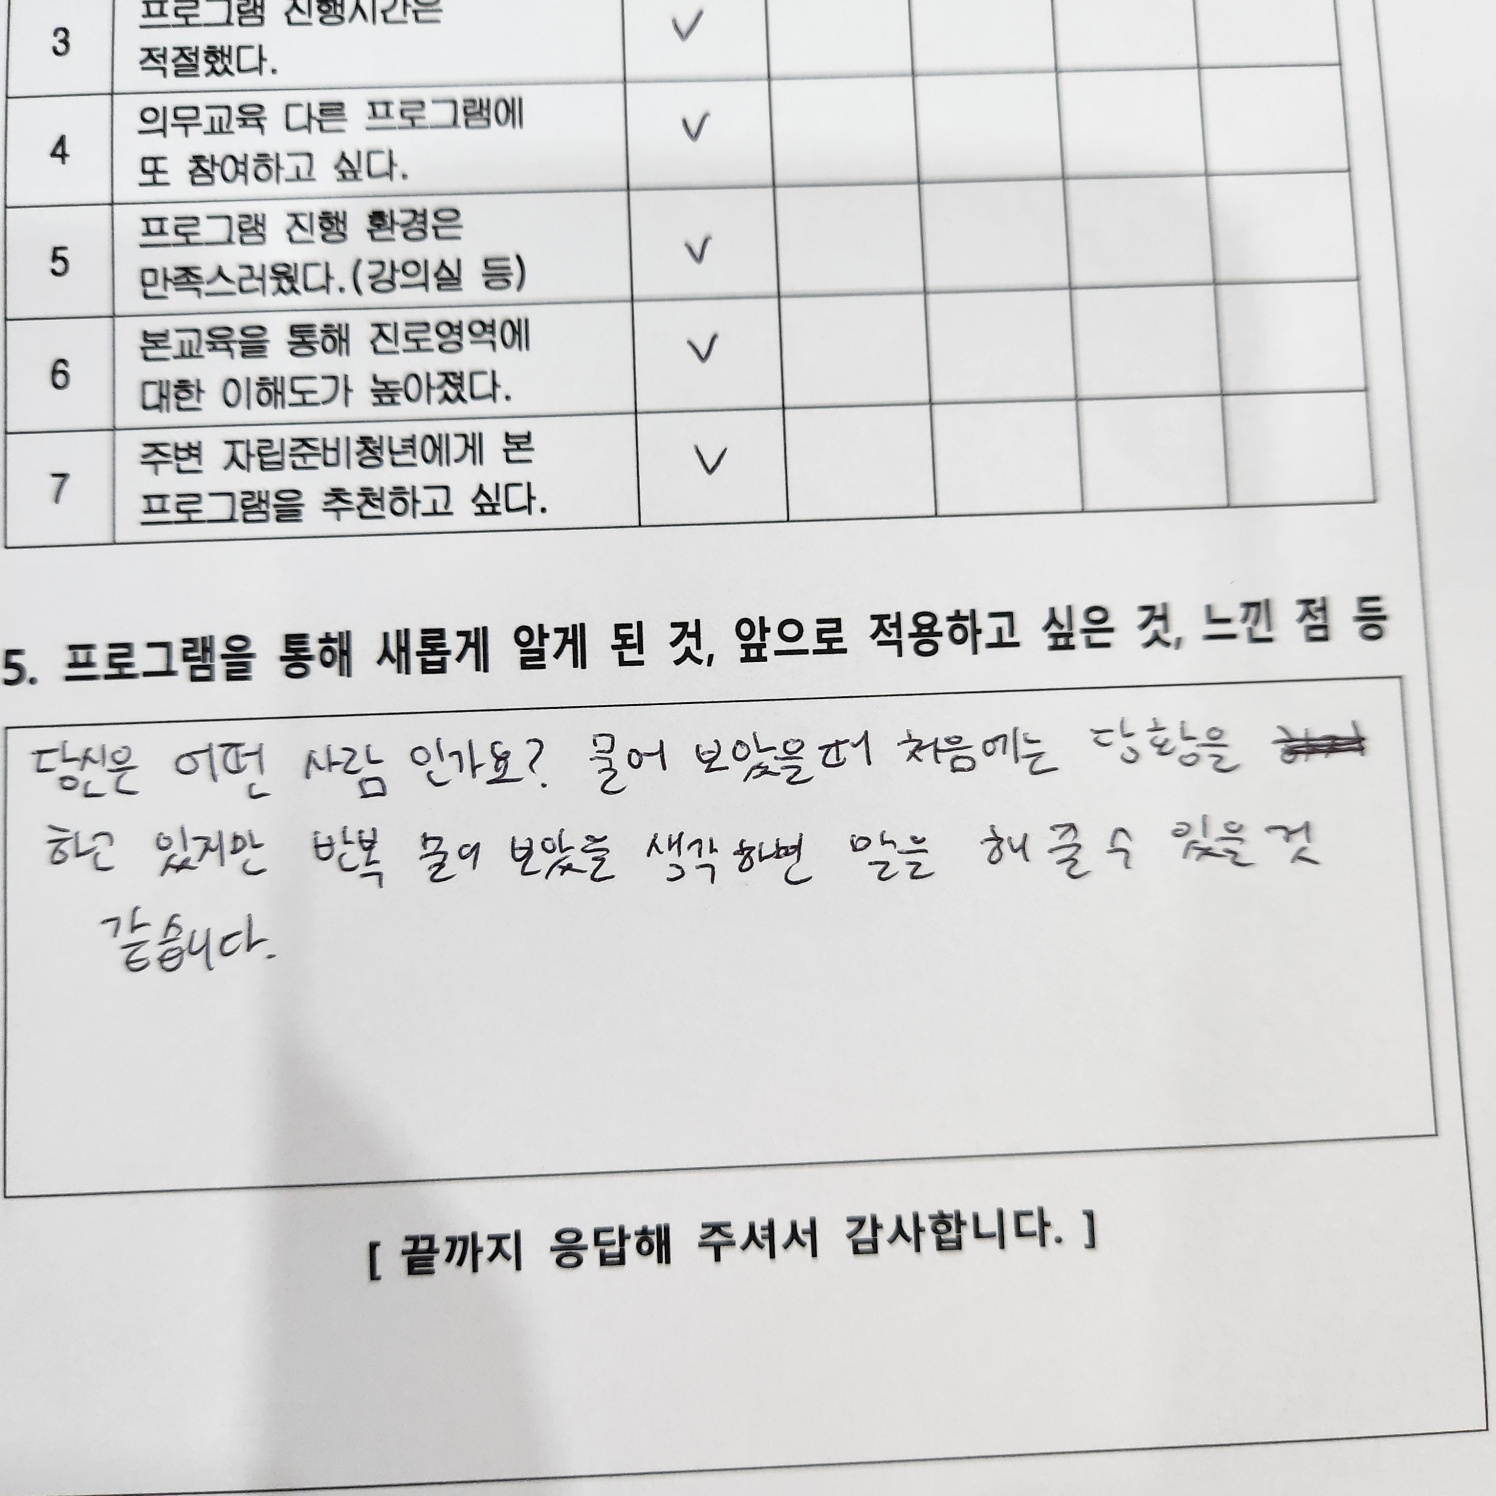 3 프로그램 진행시간은
적절했다. ✓
4 의무교육 다른 프로그램에
또 참여하고 싶다. ✓
5 프로그램 진행 환경은
만족스러웠다.(강의실 등) ✓
6 본교육을 통해 진로영역에
대한 이해도가 높아졌다. ✓
7 주변 자립준비청년에게 본
프로그램을 추천하고 싶다. ✓
5. 프로그램을 통해 새롭게 알게 된 것, 앞으로 적용하고 싶은 것, 느낀 점 등
당신은 어떤 사람 인가요? 물어 보았을때 처음에는 당황을
하고 있지만 반복 물어 보았을 생각하면 말을 해 줄 수 있을 것
같습니다.
[ 끝까지 응답해 주셔서 감사합니다. ]